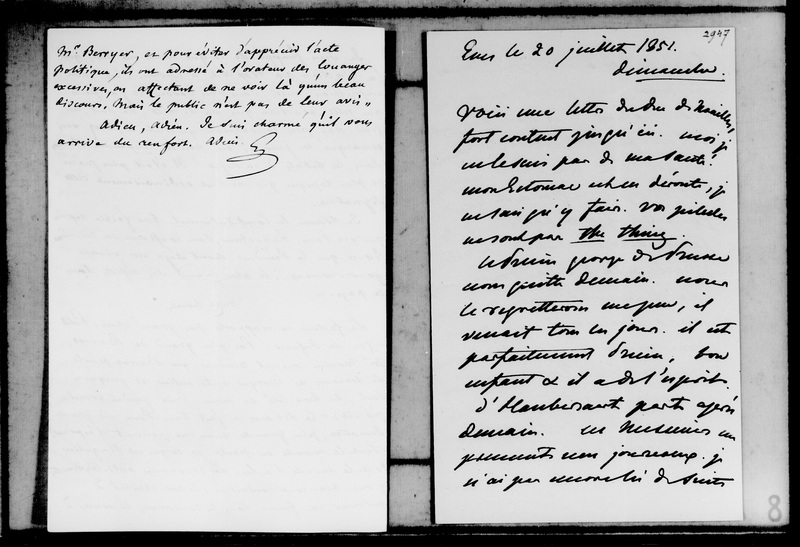 Mr Berryer, et pour éviter d'apprécier l'acte
politique, ils ont adressé à l'orateur des louanges
excessives, en affectant de ne voir là qu'un beau
discours. Mais le public n'est pas de leur avis"
Adieu, Adieu. Je suis charmé qu'il vous
arrive du renfort. Adieu. G
2947
Ems le 20 juillet 1851.
dimanche.
Voici une lettre du duc de Noailles,
fort content jusqu'ici. moi, je
ne le suis pas de ma santé.
mon Estomac est en déroute, je
ne sais qu'y faire. vos pilules
ne sont pas the thing.
le Prince george de Prusse
nous quitte demain. nous
le regretterons un peu, il
venait tous les jours. il est
parfaitement Prince, bon
enfant & il a de l'esprit.
d'Haubersaert part après
demain. ces Messieurs me
prennent mes journaux. je
n'ai pas encore lu de suite
8